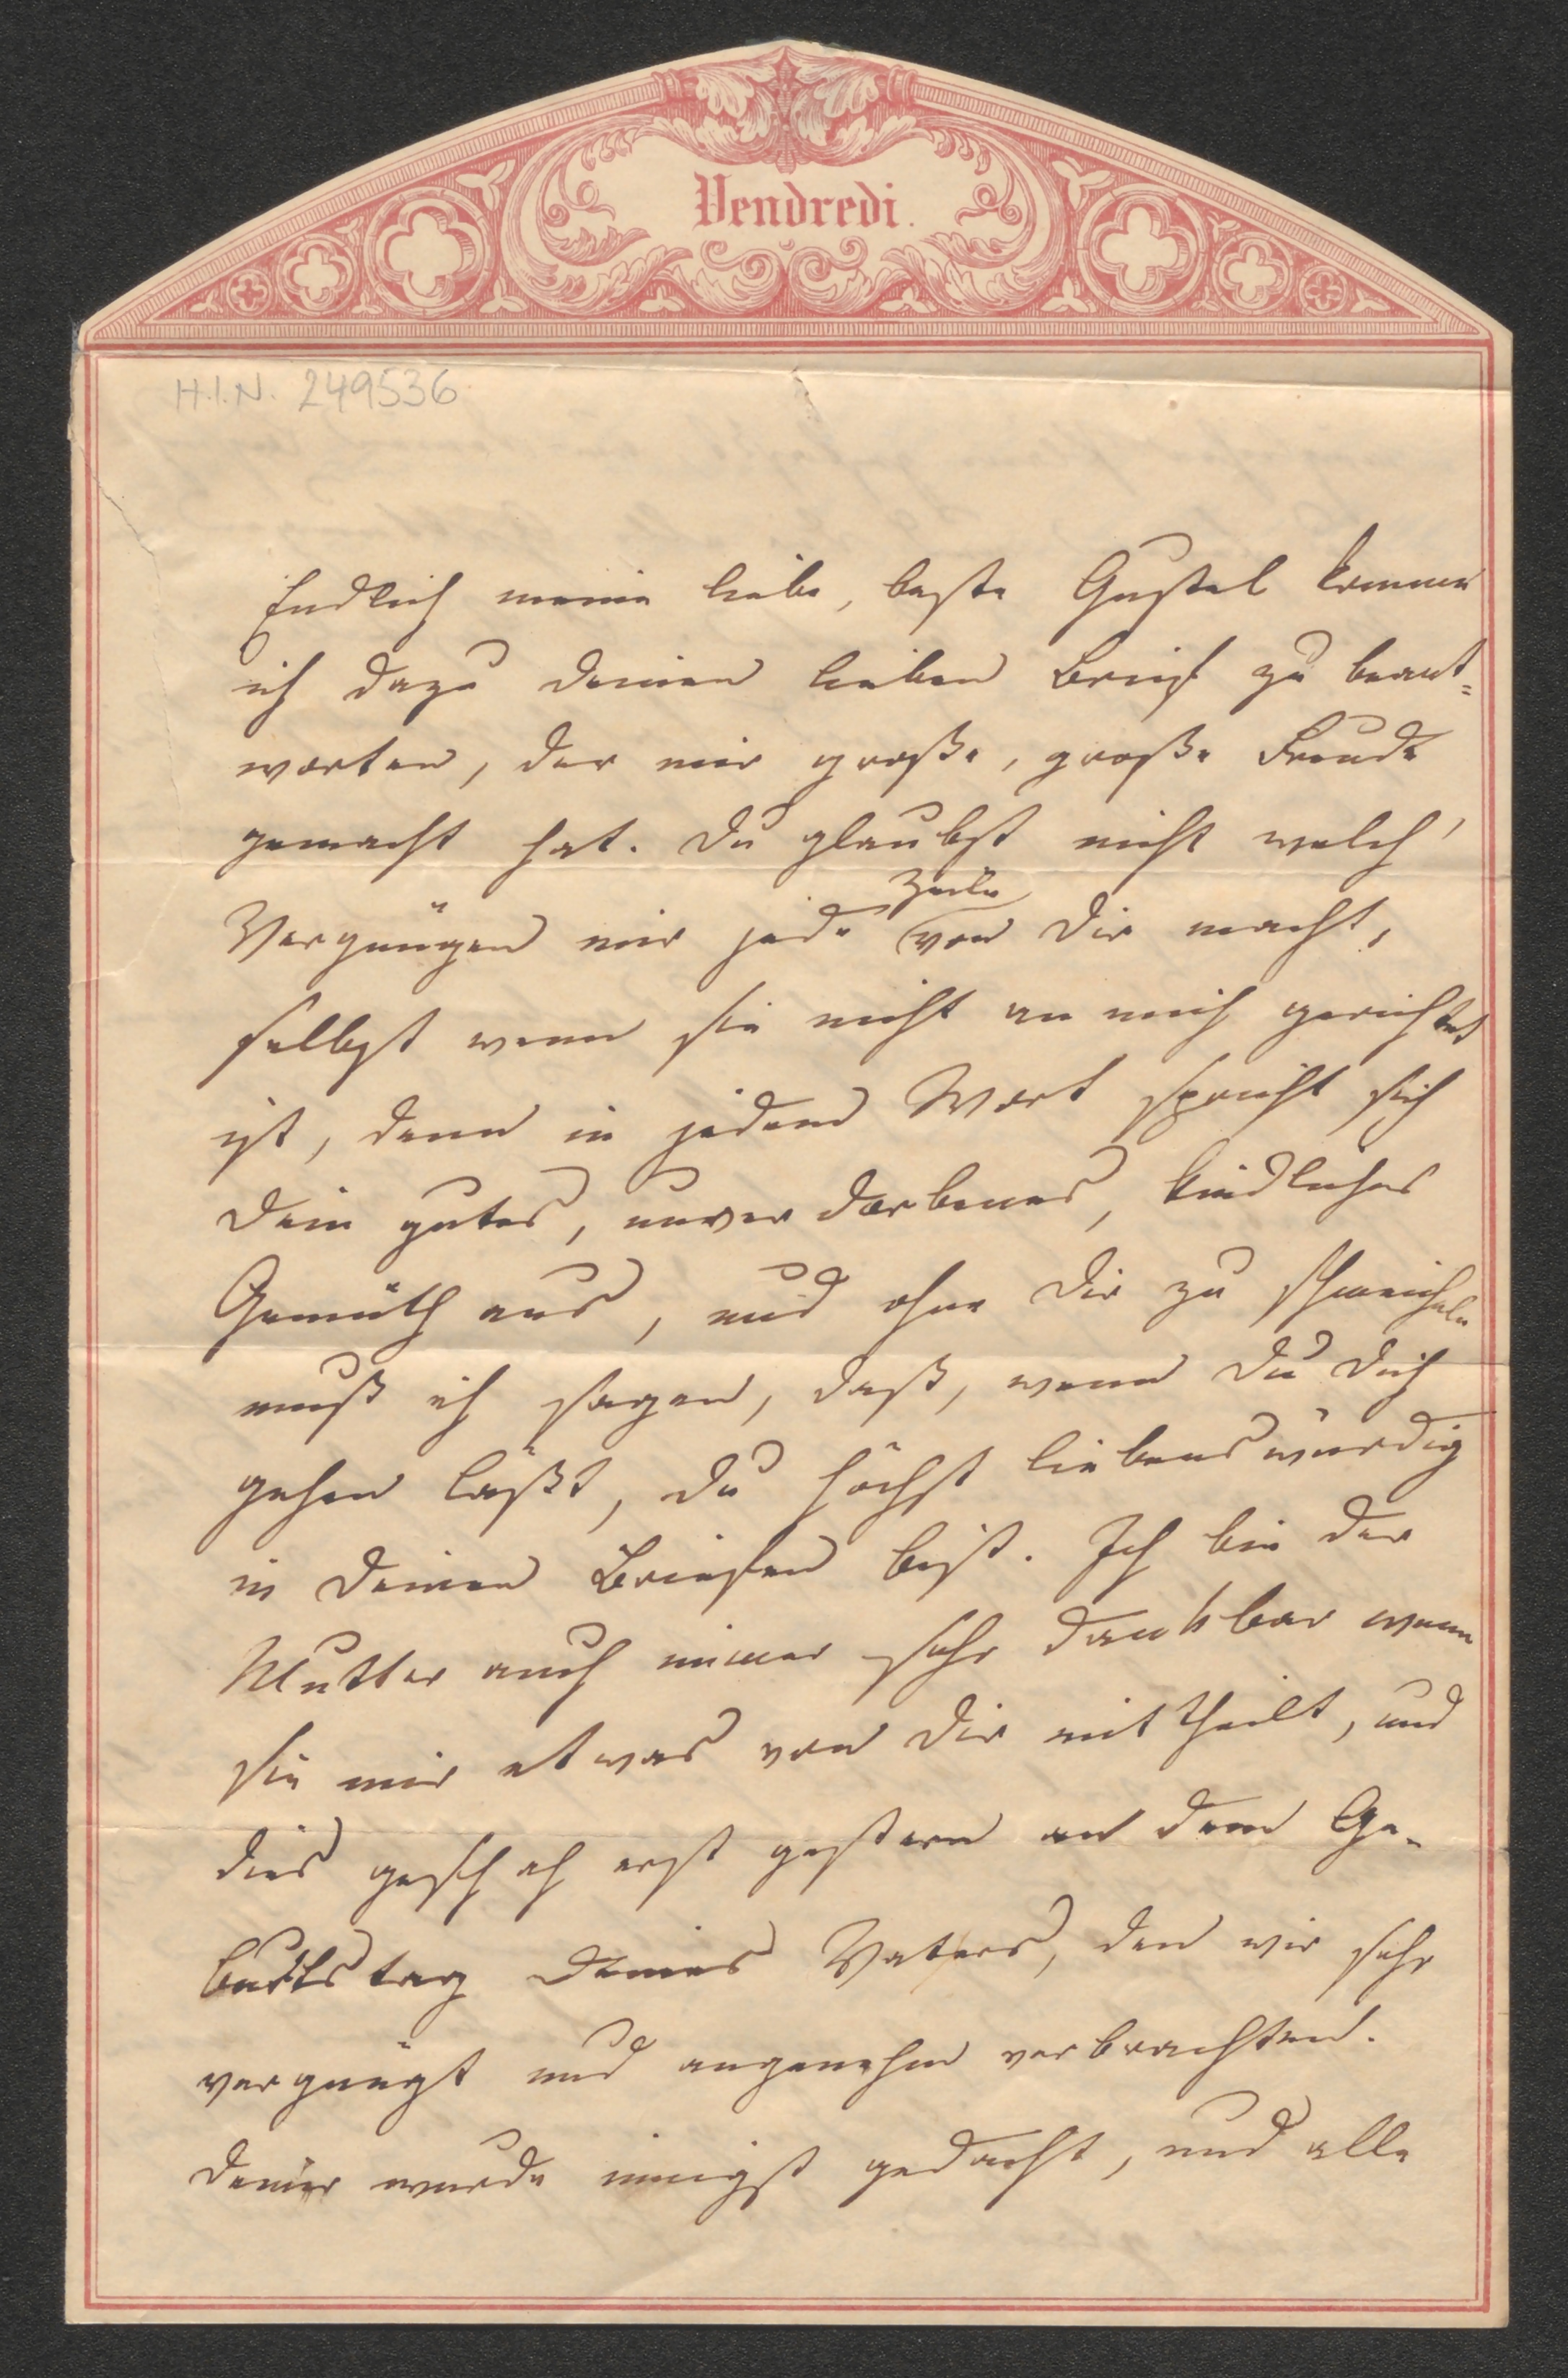 Vendredi.
H.I.N. 249536
Endlich meine liebe, beste Gustel komme
ich dazu Deinen lieben Brief zu beant=
worten, der mir große, große Freude
gemacht hat. Du glaubst nicht welch'
Zeile
Vergnügen mir jede von Dir macht,
selbst wenn sie nicht an mich gerichtet
ist, denn in jedem Wort spricht sich
Dein gutes, unverdorbenes, kindliches
Gemüth aus, und ohne Dir zu schmeicheln
muß ich sagen, daß, wenn Du Dich
gehen läßt, Du höchst liebenswürdig
in Deinen Briefen bist. Ich bin der
Mutter auch immer sehr dankbar wenn
sie mir etwas von Dir mittheilt, und
dies geschah erst gestern an dem Ge-
burtstag Deines Vaters, den wir sehr
vergnügt und angenehm verbrachten.
Deiner wurde innigst gedacht, und alle